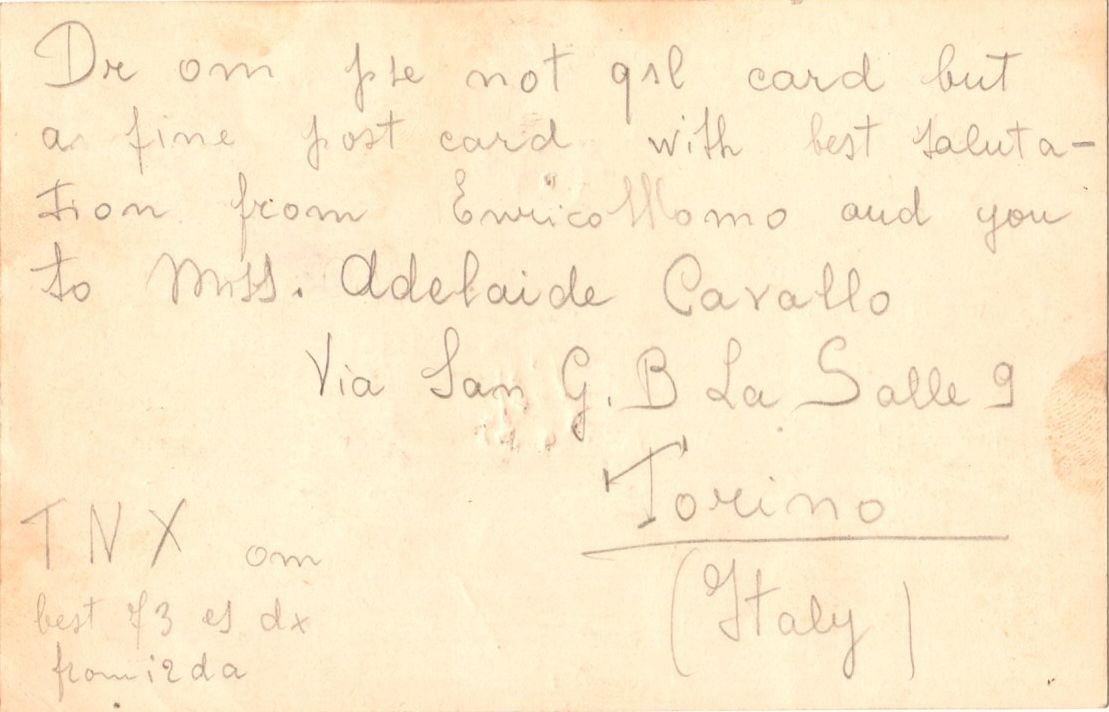 Dr om pse not qsl card but
a fine post card with best saluta-
tion from Enrico Momo and you
to Miss. Adelaide Cavallo
Via San G. B La Salle 9
Torino
(Italy)
TNX om
best 73 es dx
from i2da